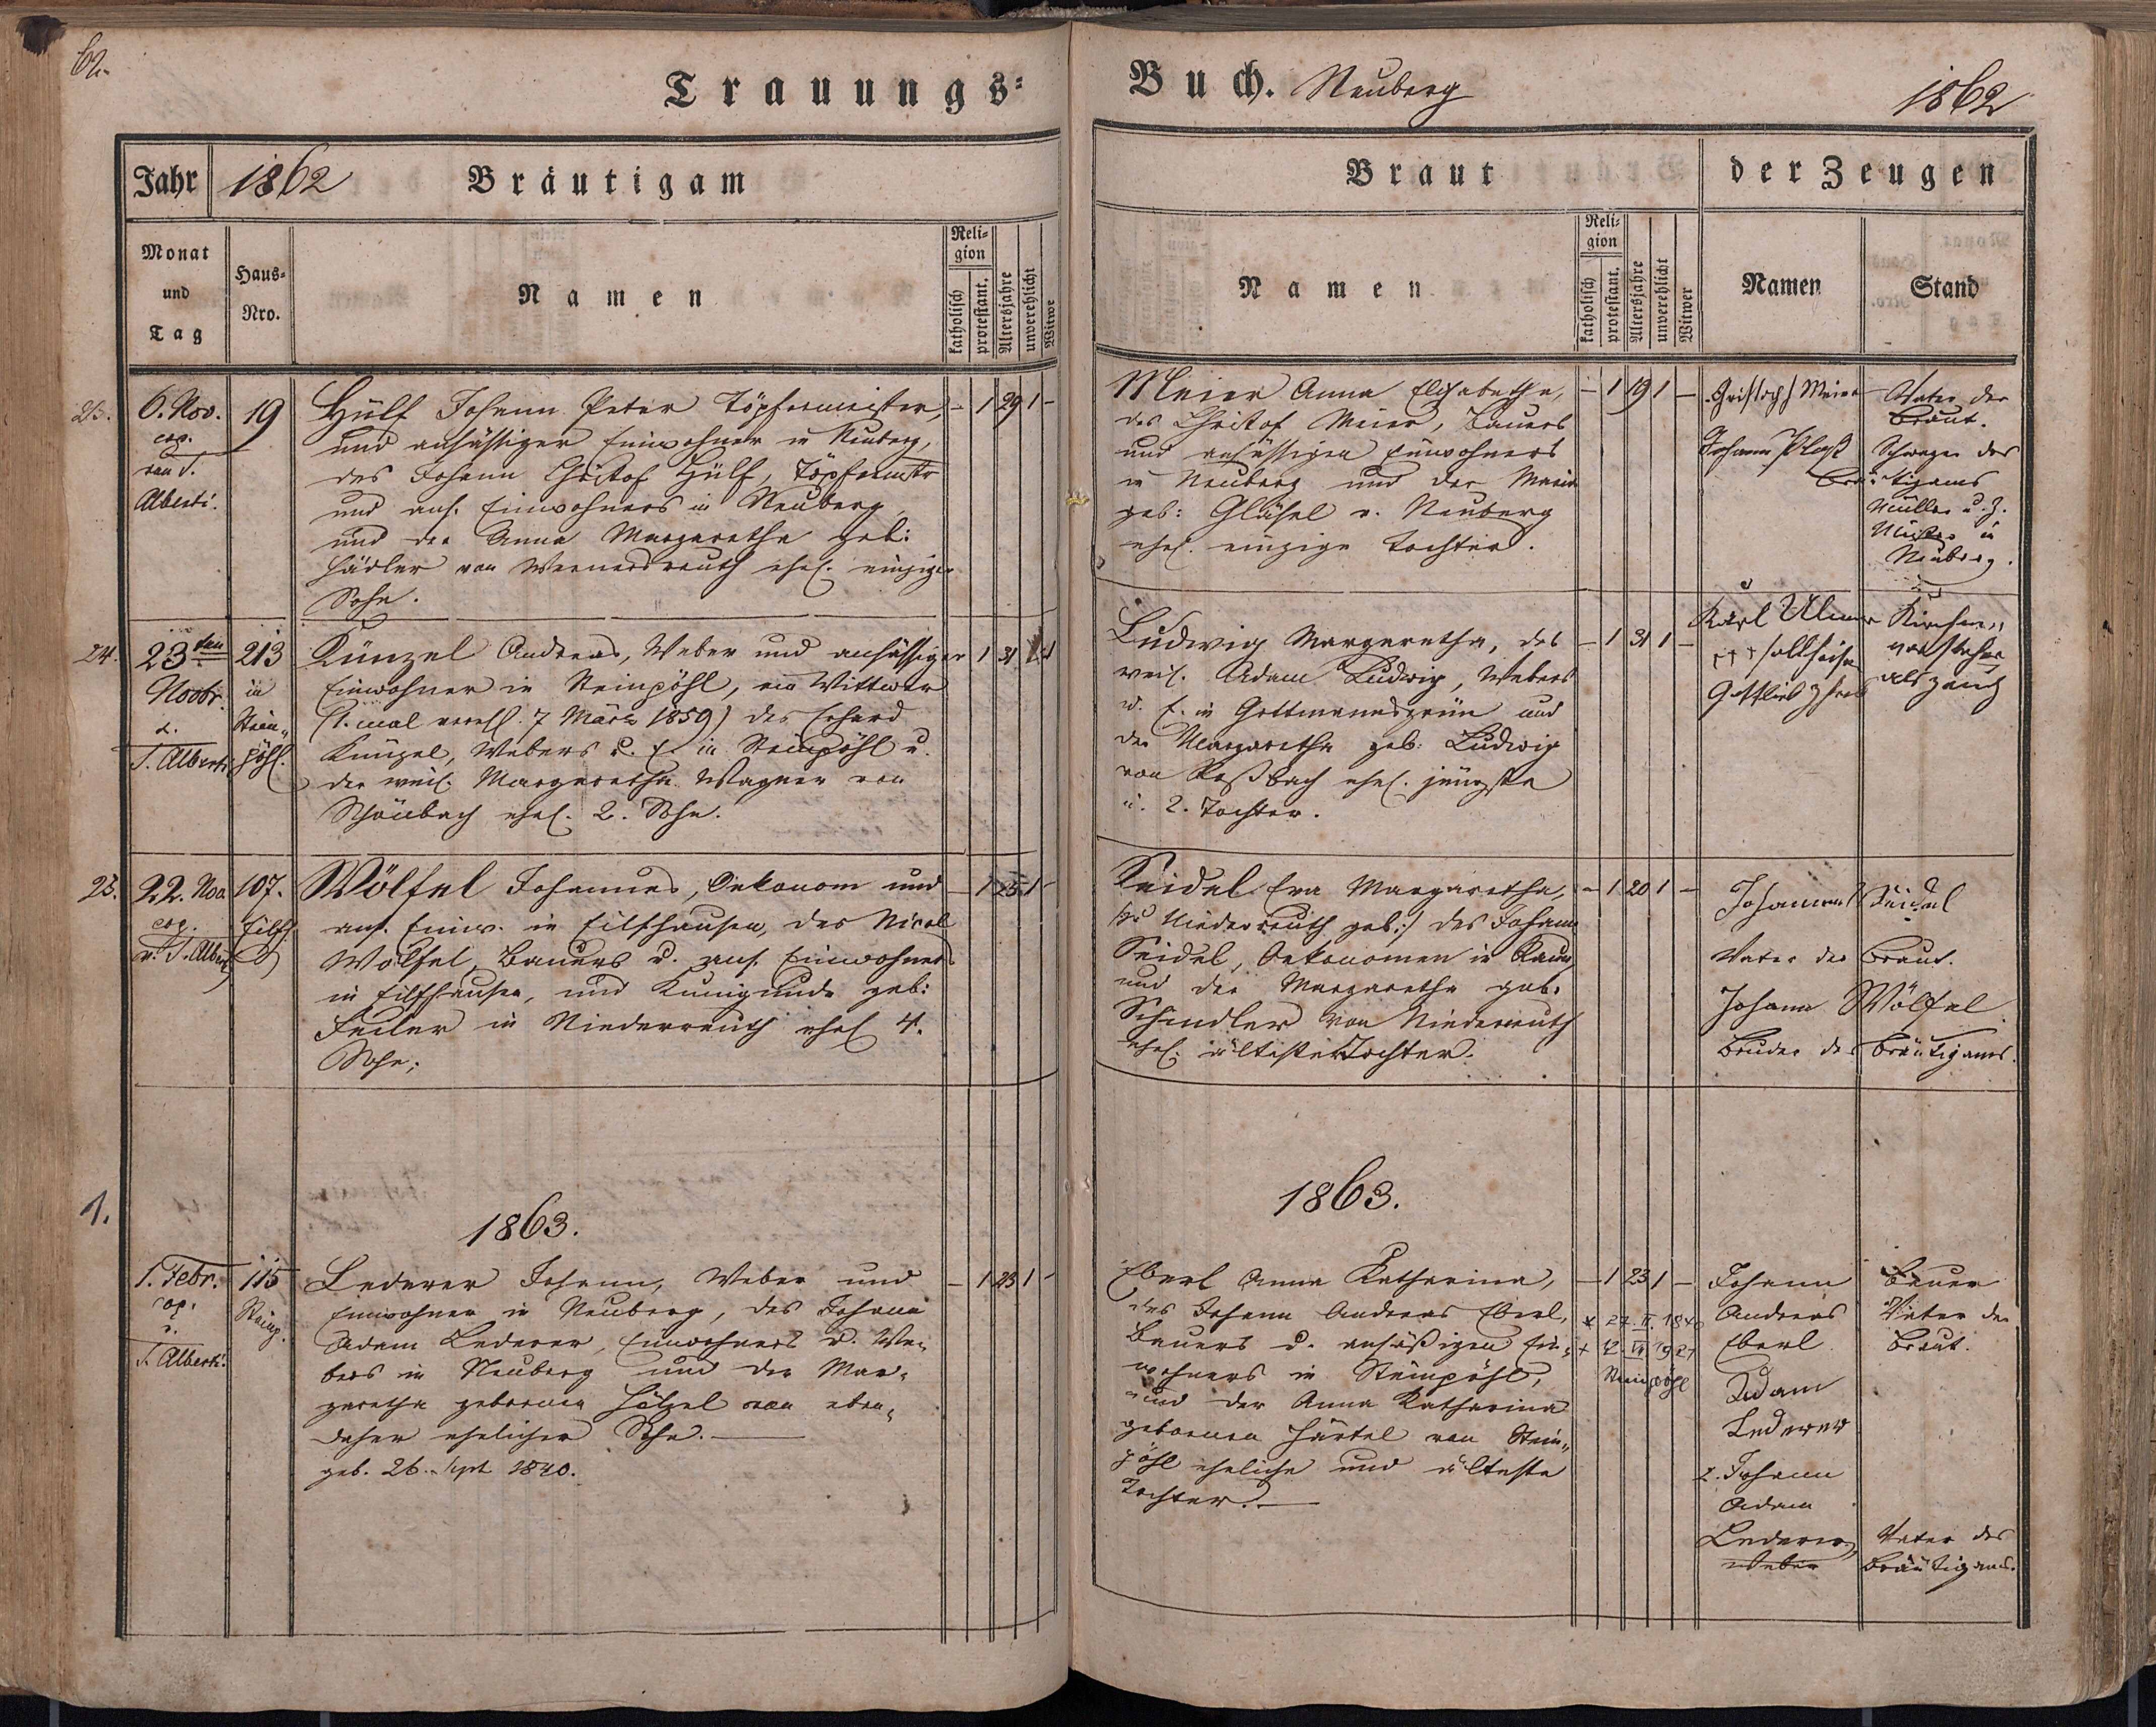 62.
Trauungs=
Buch. Neuberg
1862
Jahr 1862 Bräutigam
Monat und Tag
Haus= Nro.
Namen
Reli= gion
katholisch
protestant.
Altersjahre
unverehlicht
Witwer
Braut
der Zeugen
Namen
Reli= gion
katholisch
protestant.
Altersjahre
unverehlicht
Witwer
Namen
Stand
23.
6. Nov.
cop.
Alberti.
19
Hülf Johann Peter Töpfermeister,
und ansässiger Einwohner in Neuberg,
des Johann Christof Hülf, Töpfermstr
und ans. Einwohners in Neuberg,
und der Anna Margaretha geb:
Hädler von Wernersreuth ehel. einziger
Sohn.
– 1 29 1 –
Meier Anna Elisabetha,
des Christof Meier, Bauers
und ansässigen Einwohners
in Neuberg und der Maria
geb: Gläsel v. Neuberg
ehel. einzige Tochter.
– 1 19 1 –
Christoph Meier
Vater der
Braut.
Johann Ploß
Schwager des
Bräutigams
Müller u. Z.
Meister in
Neuberg.
24.
23ten
Novbr.
v.
T. Alberti
213
in
Stein„
pöhl.
Künzel Andreas, Weber und ansässiger
Einwohner in Steinpöhl, ein Wittwer
(1. mal verehl. 7 März 1859) des Erhard
Künzel, Webers u. E. in Steinpöhl u.
der weil. Margaretha Wagner von
Schönbach ehel. 2. Sohn.
1 31
Ludwig Margaretha, des
weil. Adam Ludwig, Webers
u. E. in Gottmannsgrün und
der Margaretha geb: Ludwig
von Roßbach ehel. jüngste
u. 2. Tochter.
– 1 31 1 –
Karl Ulmer
Kirchen„
vorsteher
als Zeug
Gottlieb
25.
22. Nov.
cop.
v. T. Alberti
107.
Eilfh
Wölfel Johannes, Oekonom und
ans. Einw. in Eilfhausen, des Nicol
Wölfel, Bauers u. ans. Einwohners
in Eilfhausen, und Kunigunde geb:
Feiler in Niederreuth ehel 4.
Sohn;
– 1 25 1 –
Seidel Eva Margaretha,
/:zu Niederreuth geb:/ des Johann
Seidel, Oekonomen in Raun,
und der Margaretha geb.
Schindler von Niederreuth
ehel. älteste Tochter.
– 1 20 1 –
Johannes Seidel
Vater der Braut.
Johann Wölfel
Bruder des Bräutigams.
1863.
1863.
1.
1. Febr.
cop.
v.
T. Alberti.
115
Steinp.
Lederer Johann, Weber und
Einwohner in Neuberg, des Johann
Adam Lederer, Einwohners u. We„
bers in Neuberg und der Mar„
garetha gebornen Hölzel von eben„
daher ehelicher Sohn. —
geb. 26. Sept 1840.
– 1 23 1 –
Eberl Anna Katharina,
des Johann Andreas Eberl,
Bauers u. ansäßigen Ein„
wohners in Steinpöhl,
und der Anna Katharina
gebornen Härtel von Stein„
pöhl eheliche und älteste
Tochter. —
– 1 23 1 –
* 27. II. 1840
Steinpöhl
Johann
Andreas
Eberl
Bauer
Vater der
Braut.
Adam
Lederer
2. Johann
Adam
Lederer,
Weber
Vater des
Bräutigams.